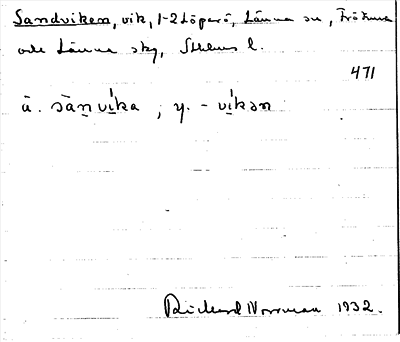 Sandviken, vik, 1-2 Löparö, Länna sn, Frötuna
och Länna skg, Sthlms l.
471
ä. sānvika ; y. -vikən
Rickard Norrman 1932.